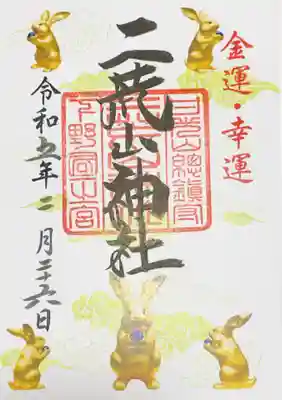 金運・幸運
二荒山神社
日光山總鎮守
下野國一宮
令和五年二月二十六日